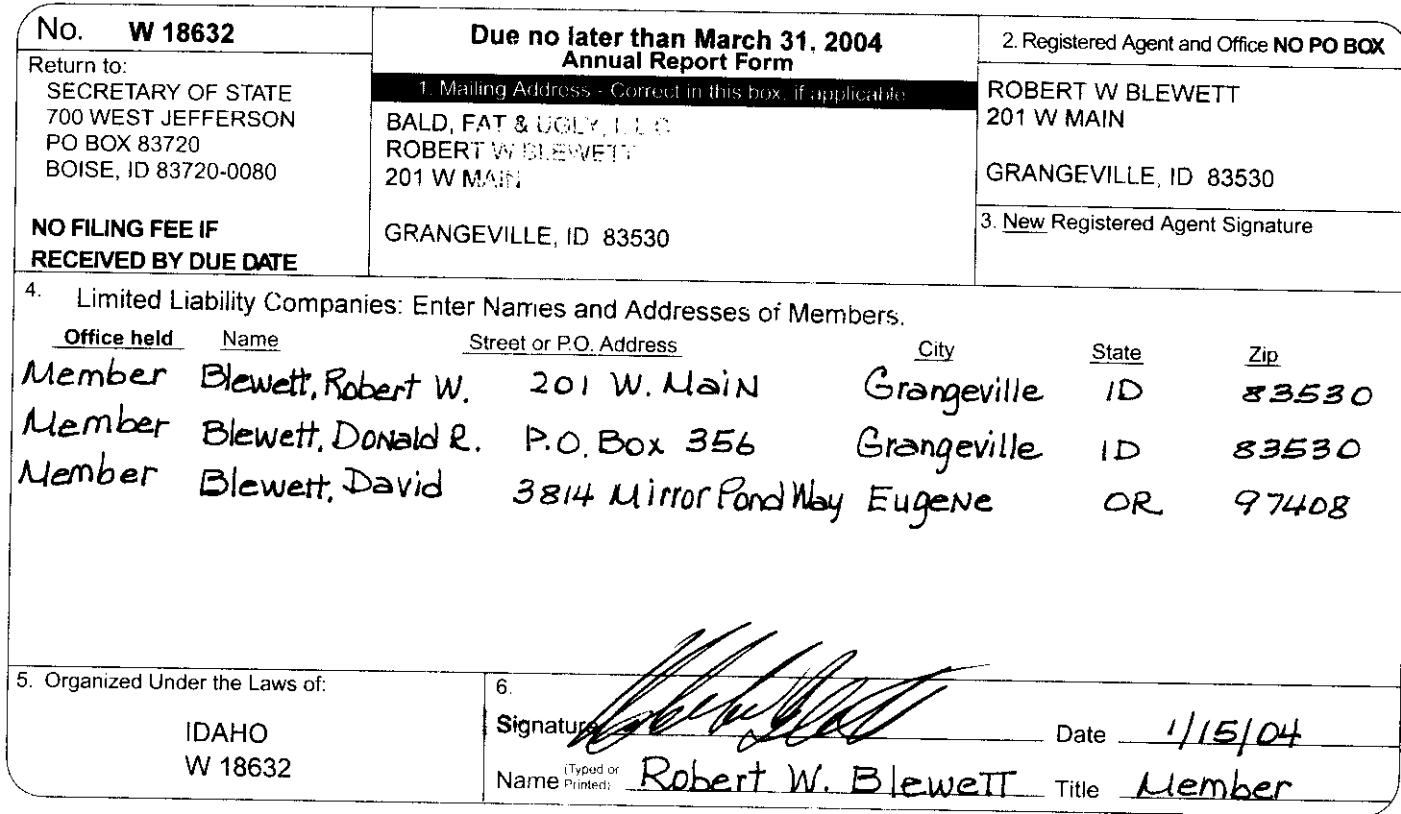 No. W 18632
Return to:
SECRETARY OF STATE
700 WEST JEFFERSON
PO BOX 83720
BOISE, ID 83720-0080
NO FILING FEE IF
RECEIVED BY DUE DATE
Due no later than March 31, 2004
Annual Report Form
1. Mailing Address - Correct in this box, if applicable
BALD, FAT & UGLY, L.L.C.
ROBERT W BLEWETT
201 W MAIN
GRANGEVILLE, ID 83530
2. Registered Agent and Office NO PO BOX
ROBERT W BLEWETT
201 W MAIN
GRANGEVILLE, ID 83530
3. New Registered Agent Signature
4. Limited Liability Companies: Enter Names and Addresses of Members.
Office held Name Street or P.O. Address City State Zip
Member Blewett, Robert W. 201 W. Main Grangeville ID 83530
Member Blewett, Donald R. P.O. Box 356 Grangeville ID 83530
Member Blewett, David 3814 Mirror Pond Way Eugene OR 97408
5. Organized Under the Laws of:
IDAHO
W 18632
6.
Signature Date 1/15/04
Name (Typed or Printed) Robert W. Blewett Title Member